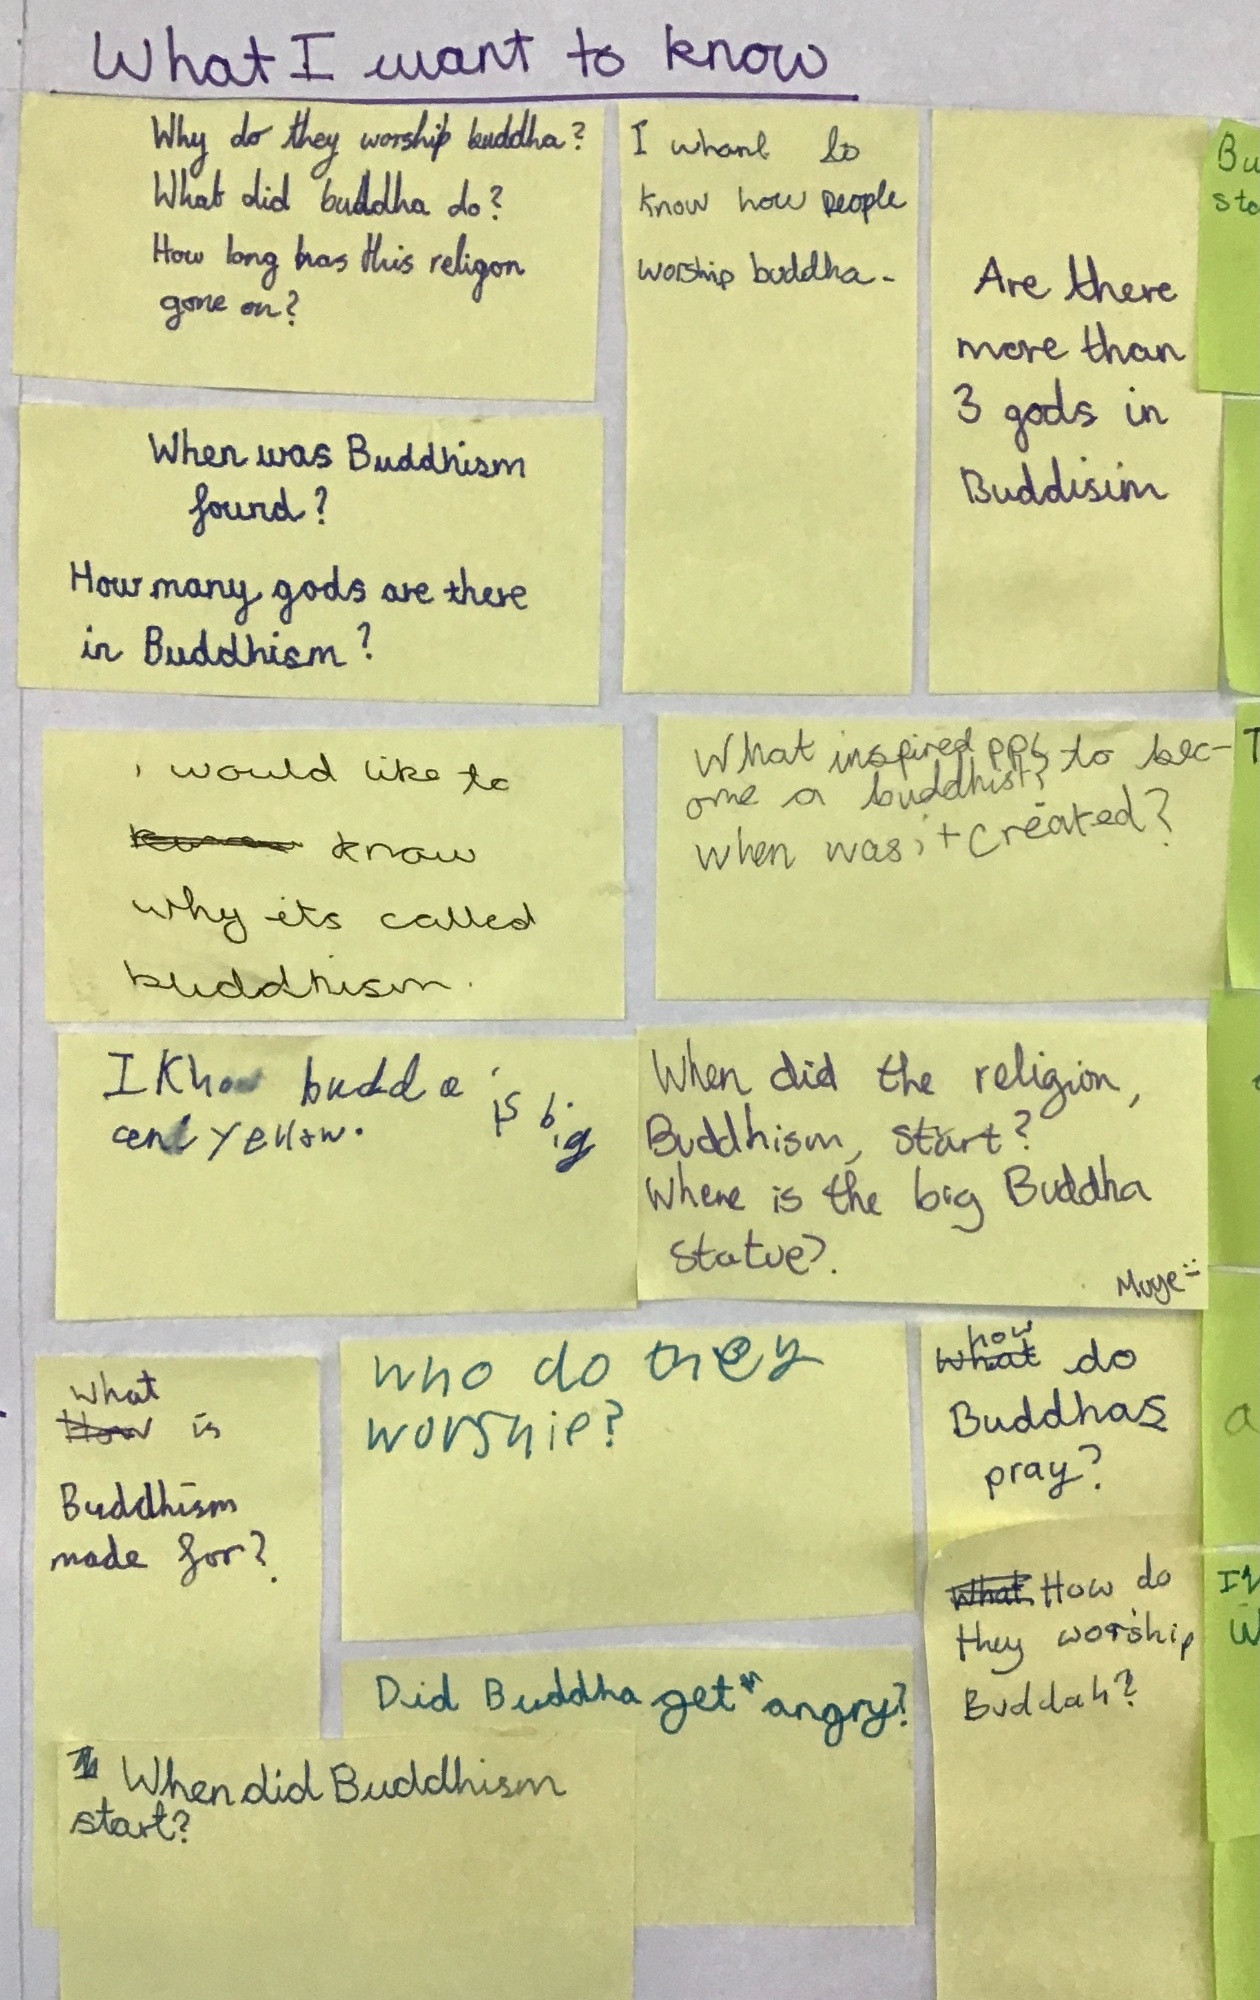 What I want to know
Why do they worship buddha?
What did buddha do?
How long has this religon
gone on?
I whant to
know how people
worship buddha.
Are there
more than
3 gods in
Buddisim
When was Buddhism
found?
How many gods are there
in Buddhism?
i would like to
know
why its called
buddhism.
What inspired ppl to bec-
ome a buddhist?
when was it created?
I Know budda is big
and yellow.
When did the religion,
Buddhism, start?
Where is the big Buddha
statue?
What
How is
Buddhism
made for?
who do they
worship?
how
What do
Buddhas
pray?
What How do
they worship
Buddah?
Did Buddha get angry?
When did Buddhism
start?
Bu
sto
T
a
W